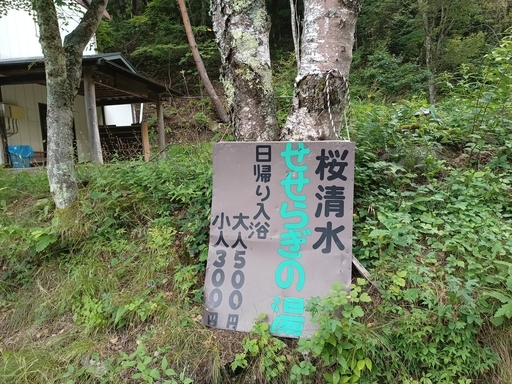 桜清水
せせらぎの湯
日帰り入浴
大人500円
小人300円